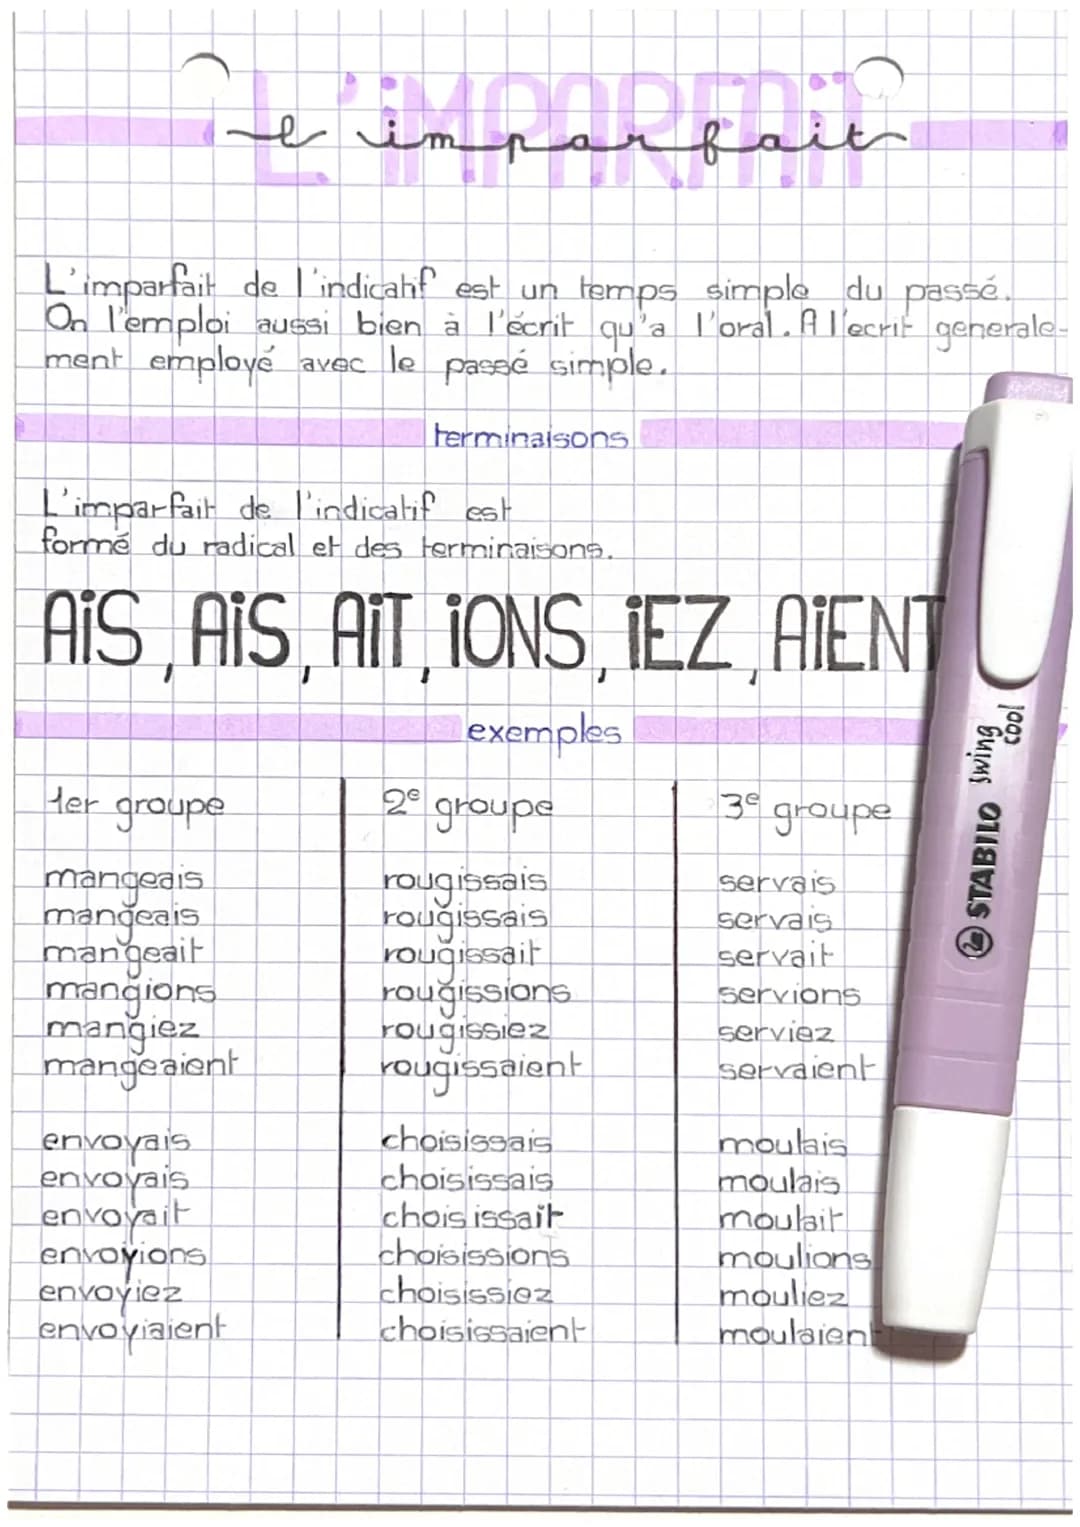 L'iMPARFAiT
l'imparfait
L'imparfait de l'indicatif est un temps simple du passé.
On l'emploi aussi bien à l'écrit qu'a l'oral. A l'ecrit generale-
ment employé avec le passé simple.
terminaisons
L'imparfait de l'indicatif est
formé du radical et des terminaisons.
AiS, AiS, AiT, iONS, iEZ, AiENT
exemples
1er groupe 2e groupe 3e groupe
mangeais rougissais servais
mangeais rougissais servais
mangeait rougissait servait
mangions rougissions servions
mangiez rougissiez serviez
mangeaient rougissaient servaient
envoyais choisissais moulais
envoyais choisissais moulais
envoyait choisissait moulait
envoyions choisissions moulions
envoyiez choisissiez mouliez
envoyiaient choisissaient moulaient
STABILO swing cool